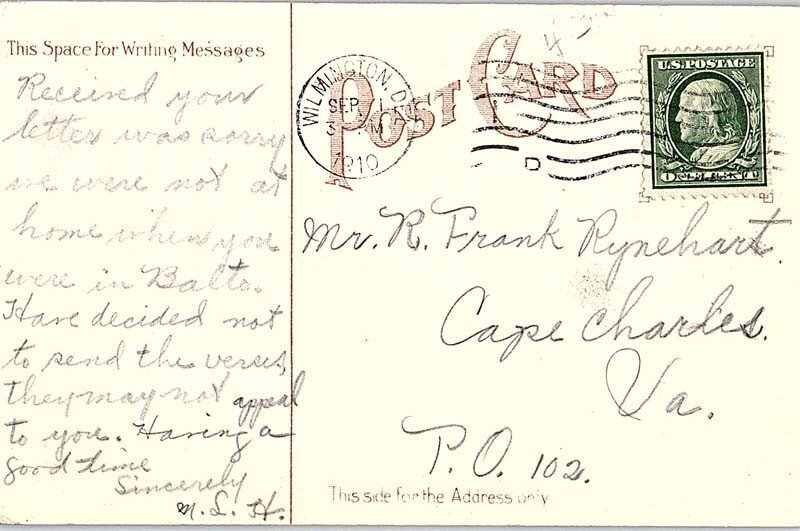 This Space For Writing Messages
Received your
letter was sorry
we were not at
home when you
were in Balto.
Have decided not
to send the verses,
they may not appal
to you. Having a
good time
Sincerely
M. L. H.
POST CARD
4
WILMINGTON, D
SEP 1
3 M
1910
D
U.S. POSTAGE
Mr. R. Frank Rynehart.
Cape Charles.
Va.
P.O. 102.
This side for the Address only